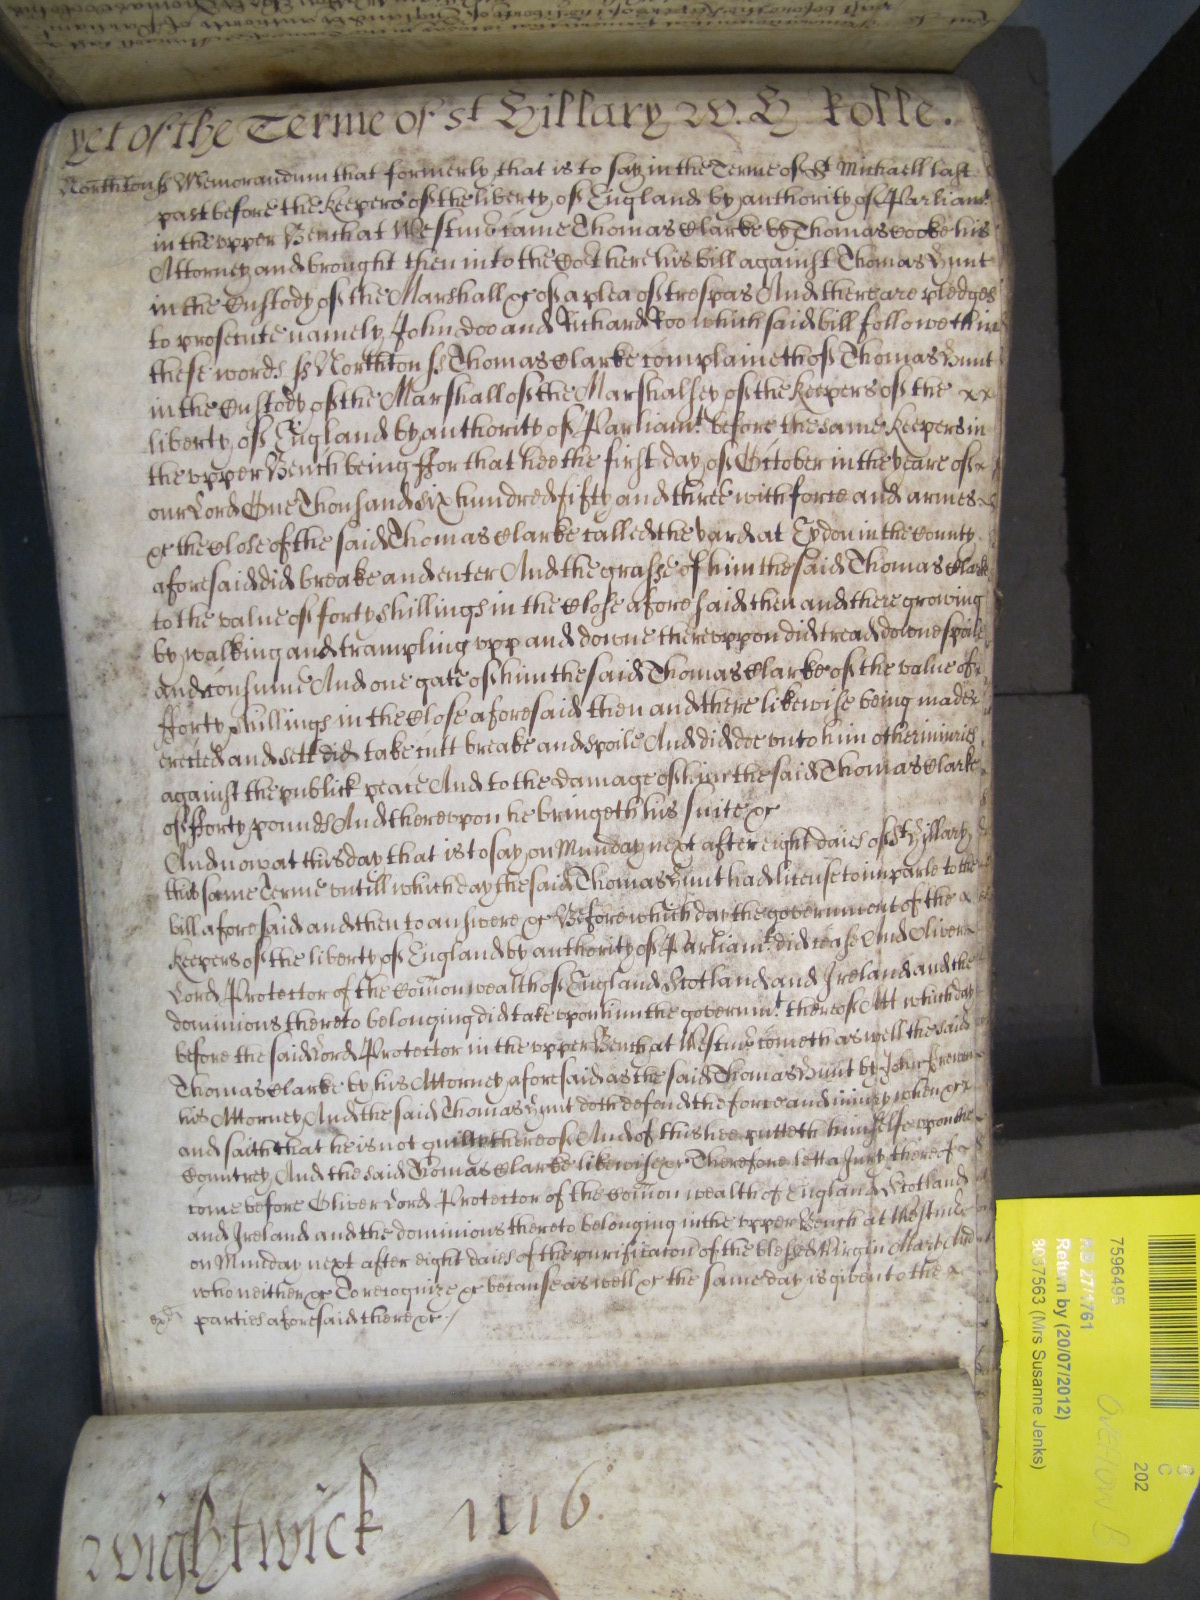 yet of the Terme of st Hillary W. H Rolle.
Northton ss Memorandum that formerly that is to say in the Terme of St Michaell last
past before the keepers of the liberty of England by authority of Parliamt
in the vpper Bench at Westmr came Thomas Clarke by Thomas Cooke his
Attorney and brought then into the Cort here his bill against Thomas Hunt
in the Custody of the Marshall &c of a plea of trespas And there are pledges
to prosecute namely John Doo and Richard Roo which said bill followeth in
these words ss Northton ss Thomas Clarke complaineth of Thomas Hunt
in the Custody of the Marshall of the Marshalsey of the keepers of the xx
liberty of England by authority of Parliamt before the same keepers in
the vpper Bench being ffor that hee the first day of October in the yeare of x
our Lord One Thousand six hundred fifty and three with force and armes x
&c the Close of the said Thomas Clarke called the yard at Eydon in the County
aforesaid did breake and enter And the grasse of him the said Thomas Clarke
to the value of forty shillings in the Close aforesaid then and there growing
by walking and trampling vpp and downe therevppon did tread downe spoile
and consume And one gate of him the said Thomas Clarke of the value of
fforty shillings in the Close aforesaid then and there likewise being made
erected and sett did take cutt breake and spoile And did doe vnto him other iniuries
against the publick peace And to the damage of him the said Thomas Clarke
of fforty pounds And therevpon he bringeth his suite &c
And now at this day that is to say on Munday next after eight daies of St Hillary
this same Terme vntill which day the said Thomas Hunt had license to imparle to the
bill aforesaid and then to answere &c Before which day the government of the x
keepers of the liberty of England by authority of Parliamt did cease And Oliver
Lord Protector of the Comon wealth of England Scotland and Ireland and the
dominions thereto belonging did take vpon him the governmt thereof Att which day
before the said Lord Protector in the vpper Bench at Westmr cometh as well the said
Thomas Clarke by his Attorney aforesaid as the said Thomas Hunt by John
his Attorney And the said Thomas Hunt doth defend the force and iniury when &c x
and saith that he is not guilty thereof And of this hee putteth himselfe vpon the
Countrey And the said Thomas Clarke likewise &c Therefore lett a Jury thereof
come before Oliver Lord Protector of the Comon wealth of England Scotland
and Ireland and the dominions thereto belonging in the vpper Bench at Westmr
on Munday next after eight daies of the purificacon of the blessed Virgin Mary And
who neither &c To recognize &c because as well &c the same day is given to the x
parties aforesaid there &c
Wightwick 1116.
7596495
KB 27/1761
Return by (20/07/2012)
3037563 (Mrs Susanne Jenks)
202